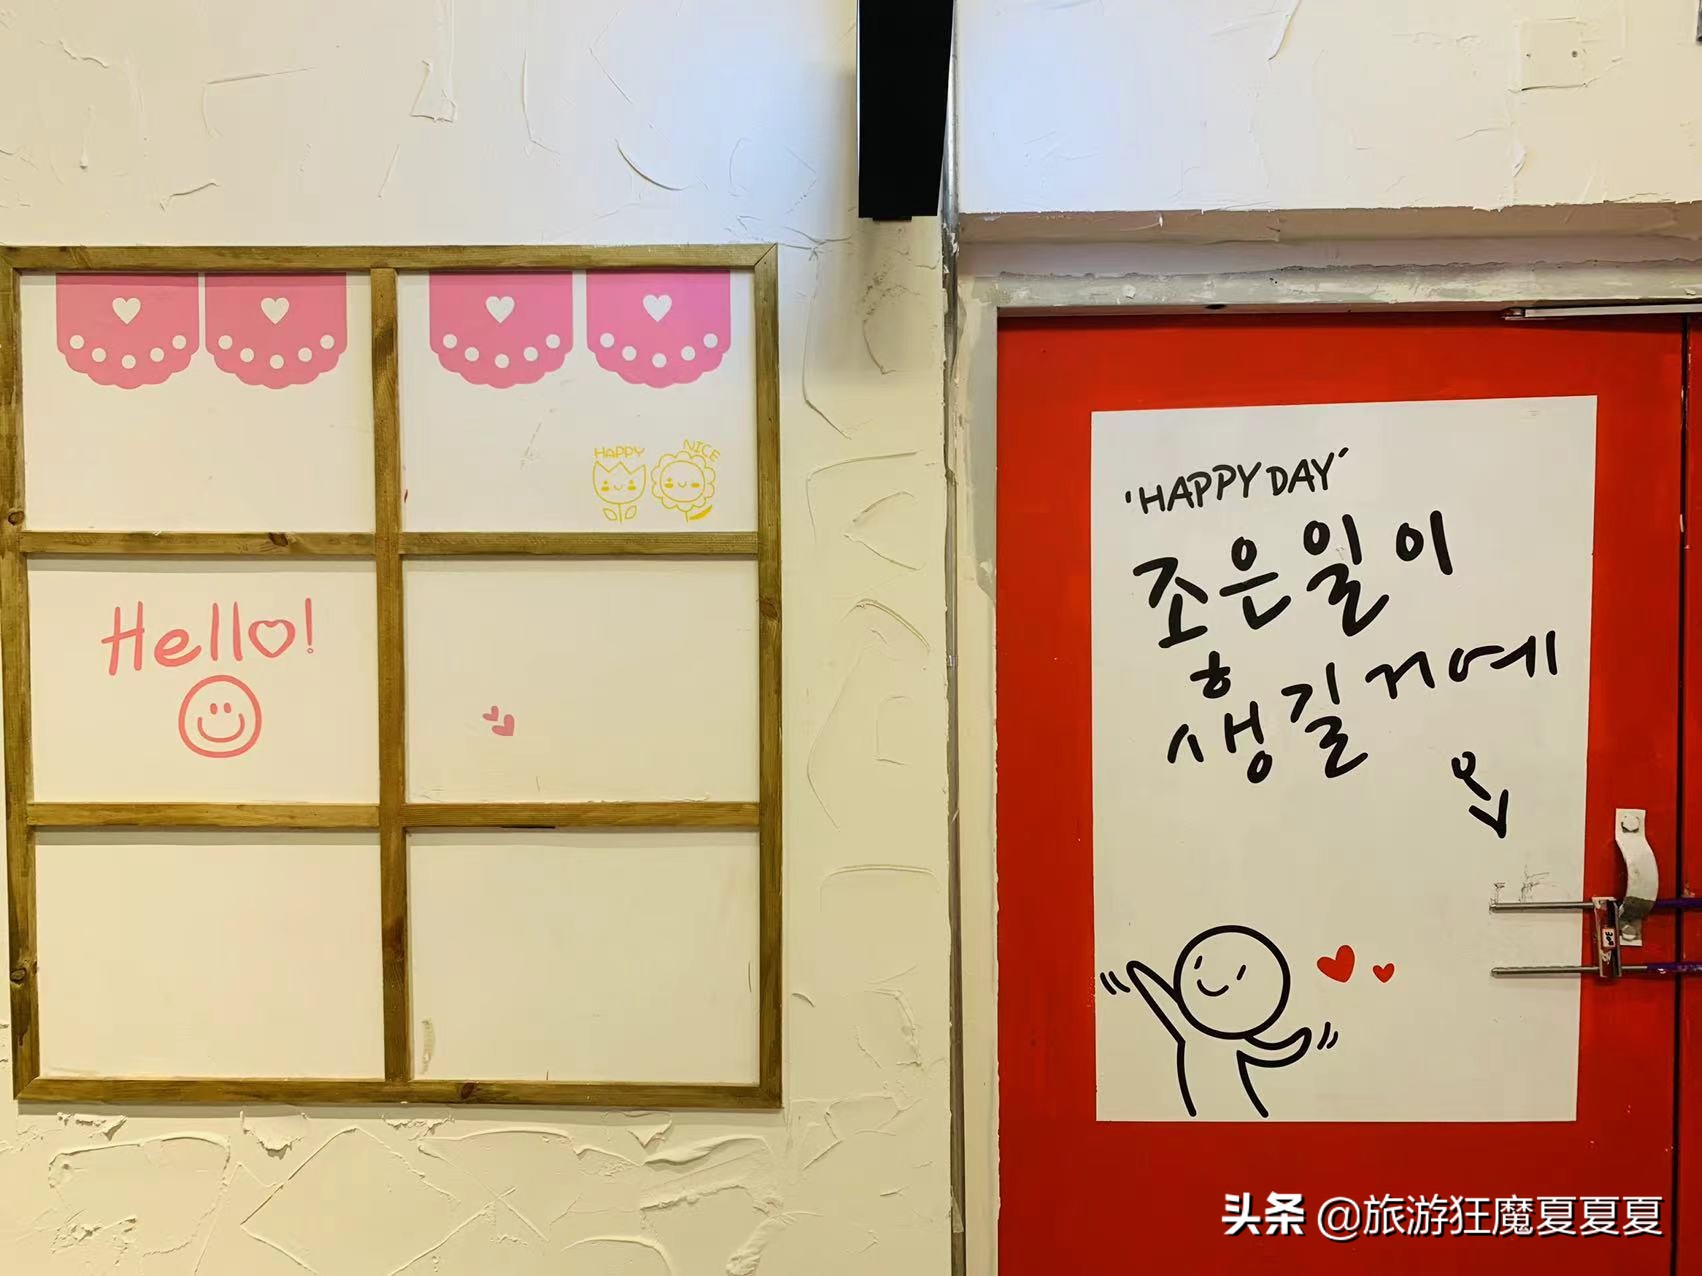 HAPPY NICE
Hello!
'HAPPY DAY'
좋은일이
생길거에
요
头条 @旅游狂魔夏夏夏